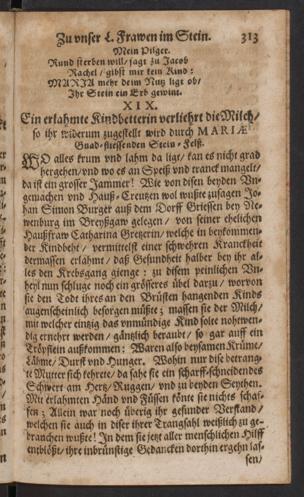 Zu unser L. Frawen im Stein. 313
Mein Pilger.
Rund sterben will / sagt zu Jacob
Rachel / gibst mir kein Kind:
MARIA mehr deim Nutz ligt ob /
Ihr Stein ein Erb gewint.
XIX.
Ein erlahmte Kindbetterin verliehrt die Milch /
so ihr widerum zugestellt wird durch MARIÆ
Gnad-fliessenden Stein-Felß.
WO alles krum und lahm da ligt / kan es nicht grad
hergehen / und wo es an Speiß und tranck mangelt /
da ist ein grosser Jammer! Wie von disen beyden Un-
gemachen und Hauß-Creutzen wol wußte zusagen Jo-
han Simon Burger auß dem Dorff Griessen bey Ne-
wenburg im Breyßgaw gelegen / von seiner ehelichen
Haußfraw Catharina Gretzerin / welche in beykommen-
der Kindbethe / vermittelst einer schwehren Kranckheit
dermassen erlahmt / daß Gesundheit halber bey ihr al-
les den Krebsgang gienge: zu disem peinlichen Un-
heyl nun schluge noch ein grösseres übel darzu / worvon
sie den Todt ihres an den Brüsten hangenden Kinds
augenscheinlich besorgen müßte; massen sie der Milch /
mit welcher eintzig das unmündige Kind solte nohtwen-
dig ernehrt werden / gäntzlich beraubt / so gar auff ein
Tröpflein außkommen: Waren also beysamen Krüme /
Lähme / Durst und Hunger. Wohin nur dise betrang-
te Mutter sich kehrete / da sahe sie ein scharff-schneidendes
Schwert am Hertz / Ruggen / und zu beyden Seythen.
Mit erlahmten Händ und Füssen könte sie nichts schaf-
fen; Allein war noch überig ihr gesunder Verstand /
welchen sie auch in diser ihrer Trangsahl weißlich zu ge-
branchen wußte! In dem sie jetzt aller menschlichen Hilff
entblößt / ihre inbrünstige Gedancken dorthin ergehn las-
sen /